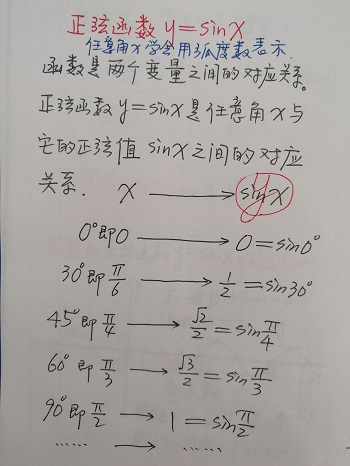 正弦函数 y=sinx
任意角x学会用弧度数表示.
函数是两个变量之间的对应关系。
正弦函数y=sinx是任意角x与
它的正弦值sinx之间的对应
关系.
x → sinx
0°即0 → 0=sin0°
30°即π/6 → 1/2=sin30°
45°即π/4 → √2/2=sinπ/4
60°即π/3 → √3/2=sinπ/3
90°即π/2 → 1=sinπ/2
...... → ......